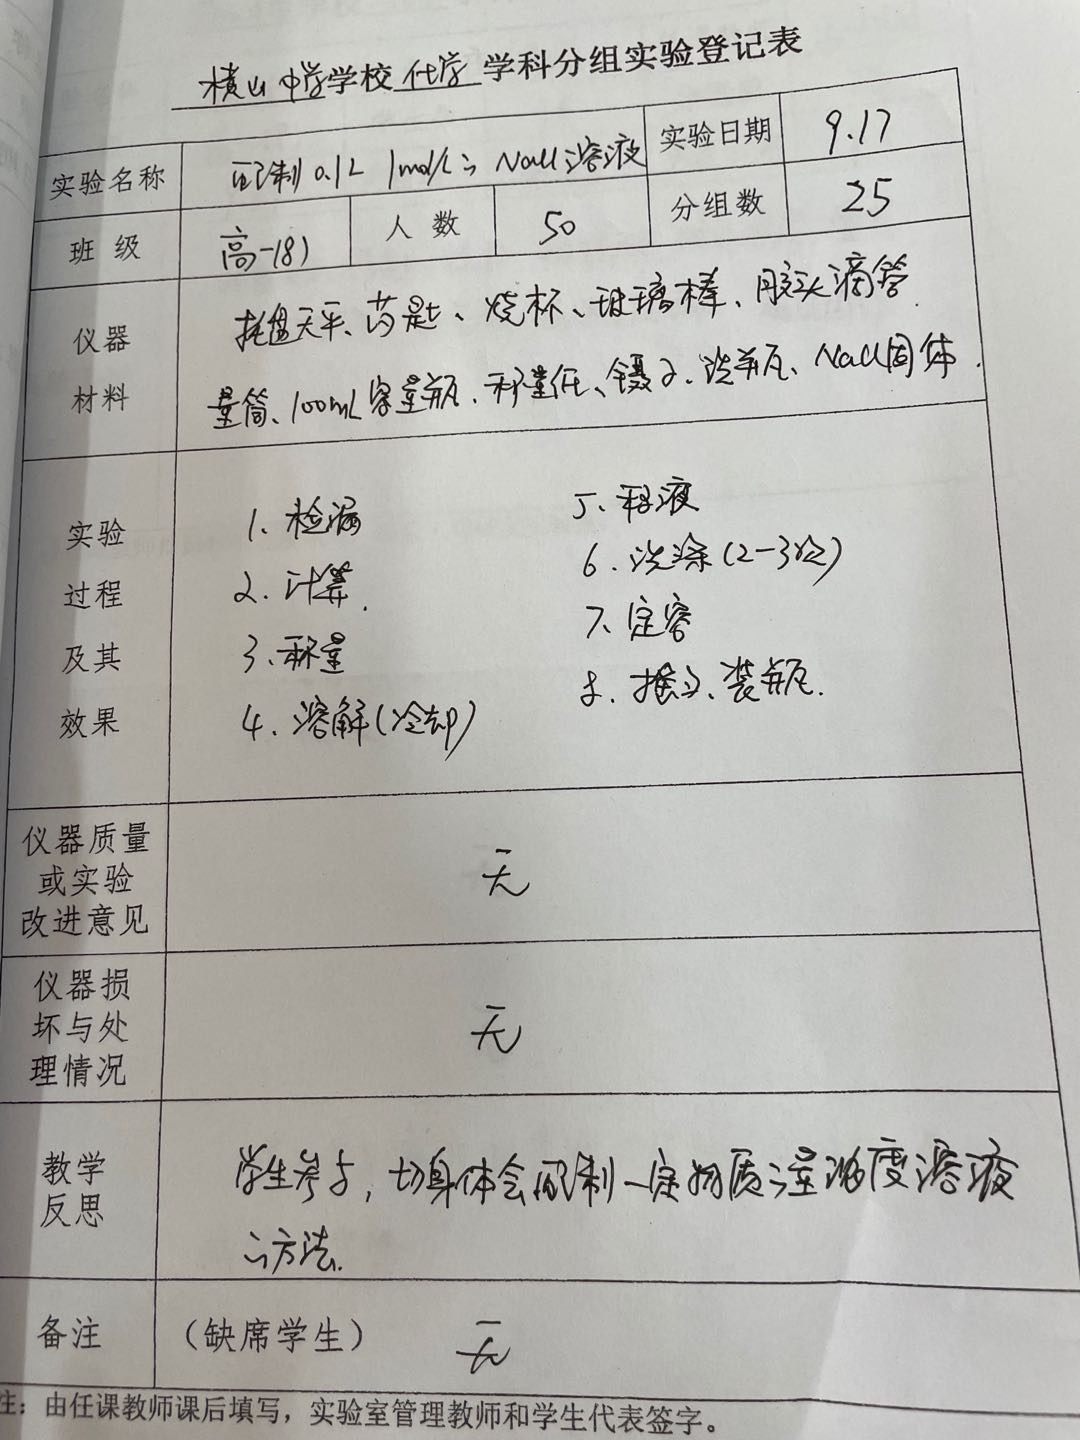 横山中学学校化学学科分组实验登记表
实验名称 配制0.1L 1mol/L的NaCl溶液 实验日期 9.17
班级 高一(8) 人数 50 分组数 25
仪器材料 托盘天平、药匙、烧杯、玻璃棒、胶头滴管
量筒、100mL容量瓶、称量纸、镊子、洗瓶、NaCl固体.
实验过程及其效果
1、检漏
2、计算.
3、称量
4、溶解(冷却)
5、移液
6、洗涤(2-3次)
7、定容
8、摇匀、装瓶.
仪器质量或实验改进意见 无
仪器损坏与处理情况 无
教学反思 学生参与,切身体会配制一定物质的量浓度溶液
的方法.
备注 (缺席学生) 无
注:由任课教师课后填写,实验室管理教师和学生代表签字。